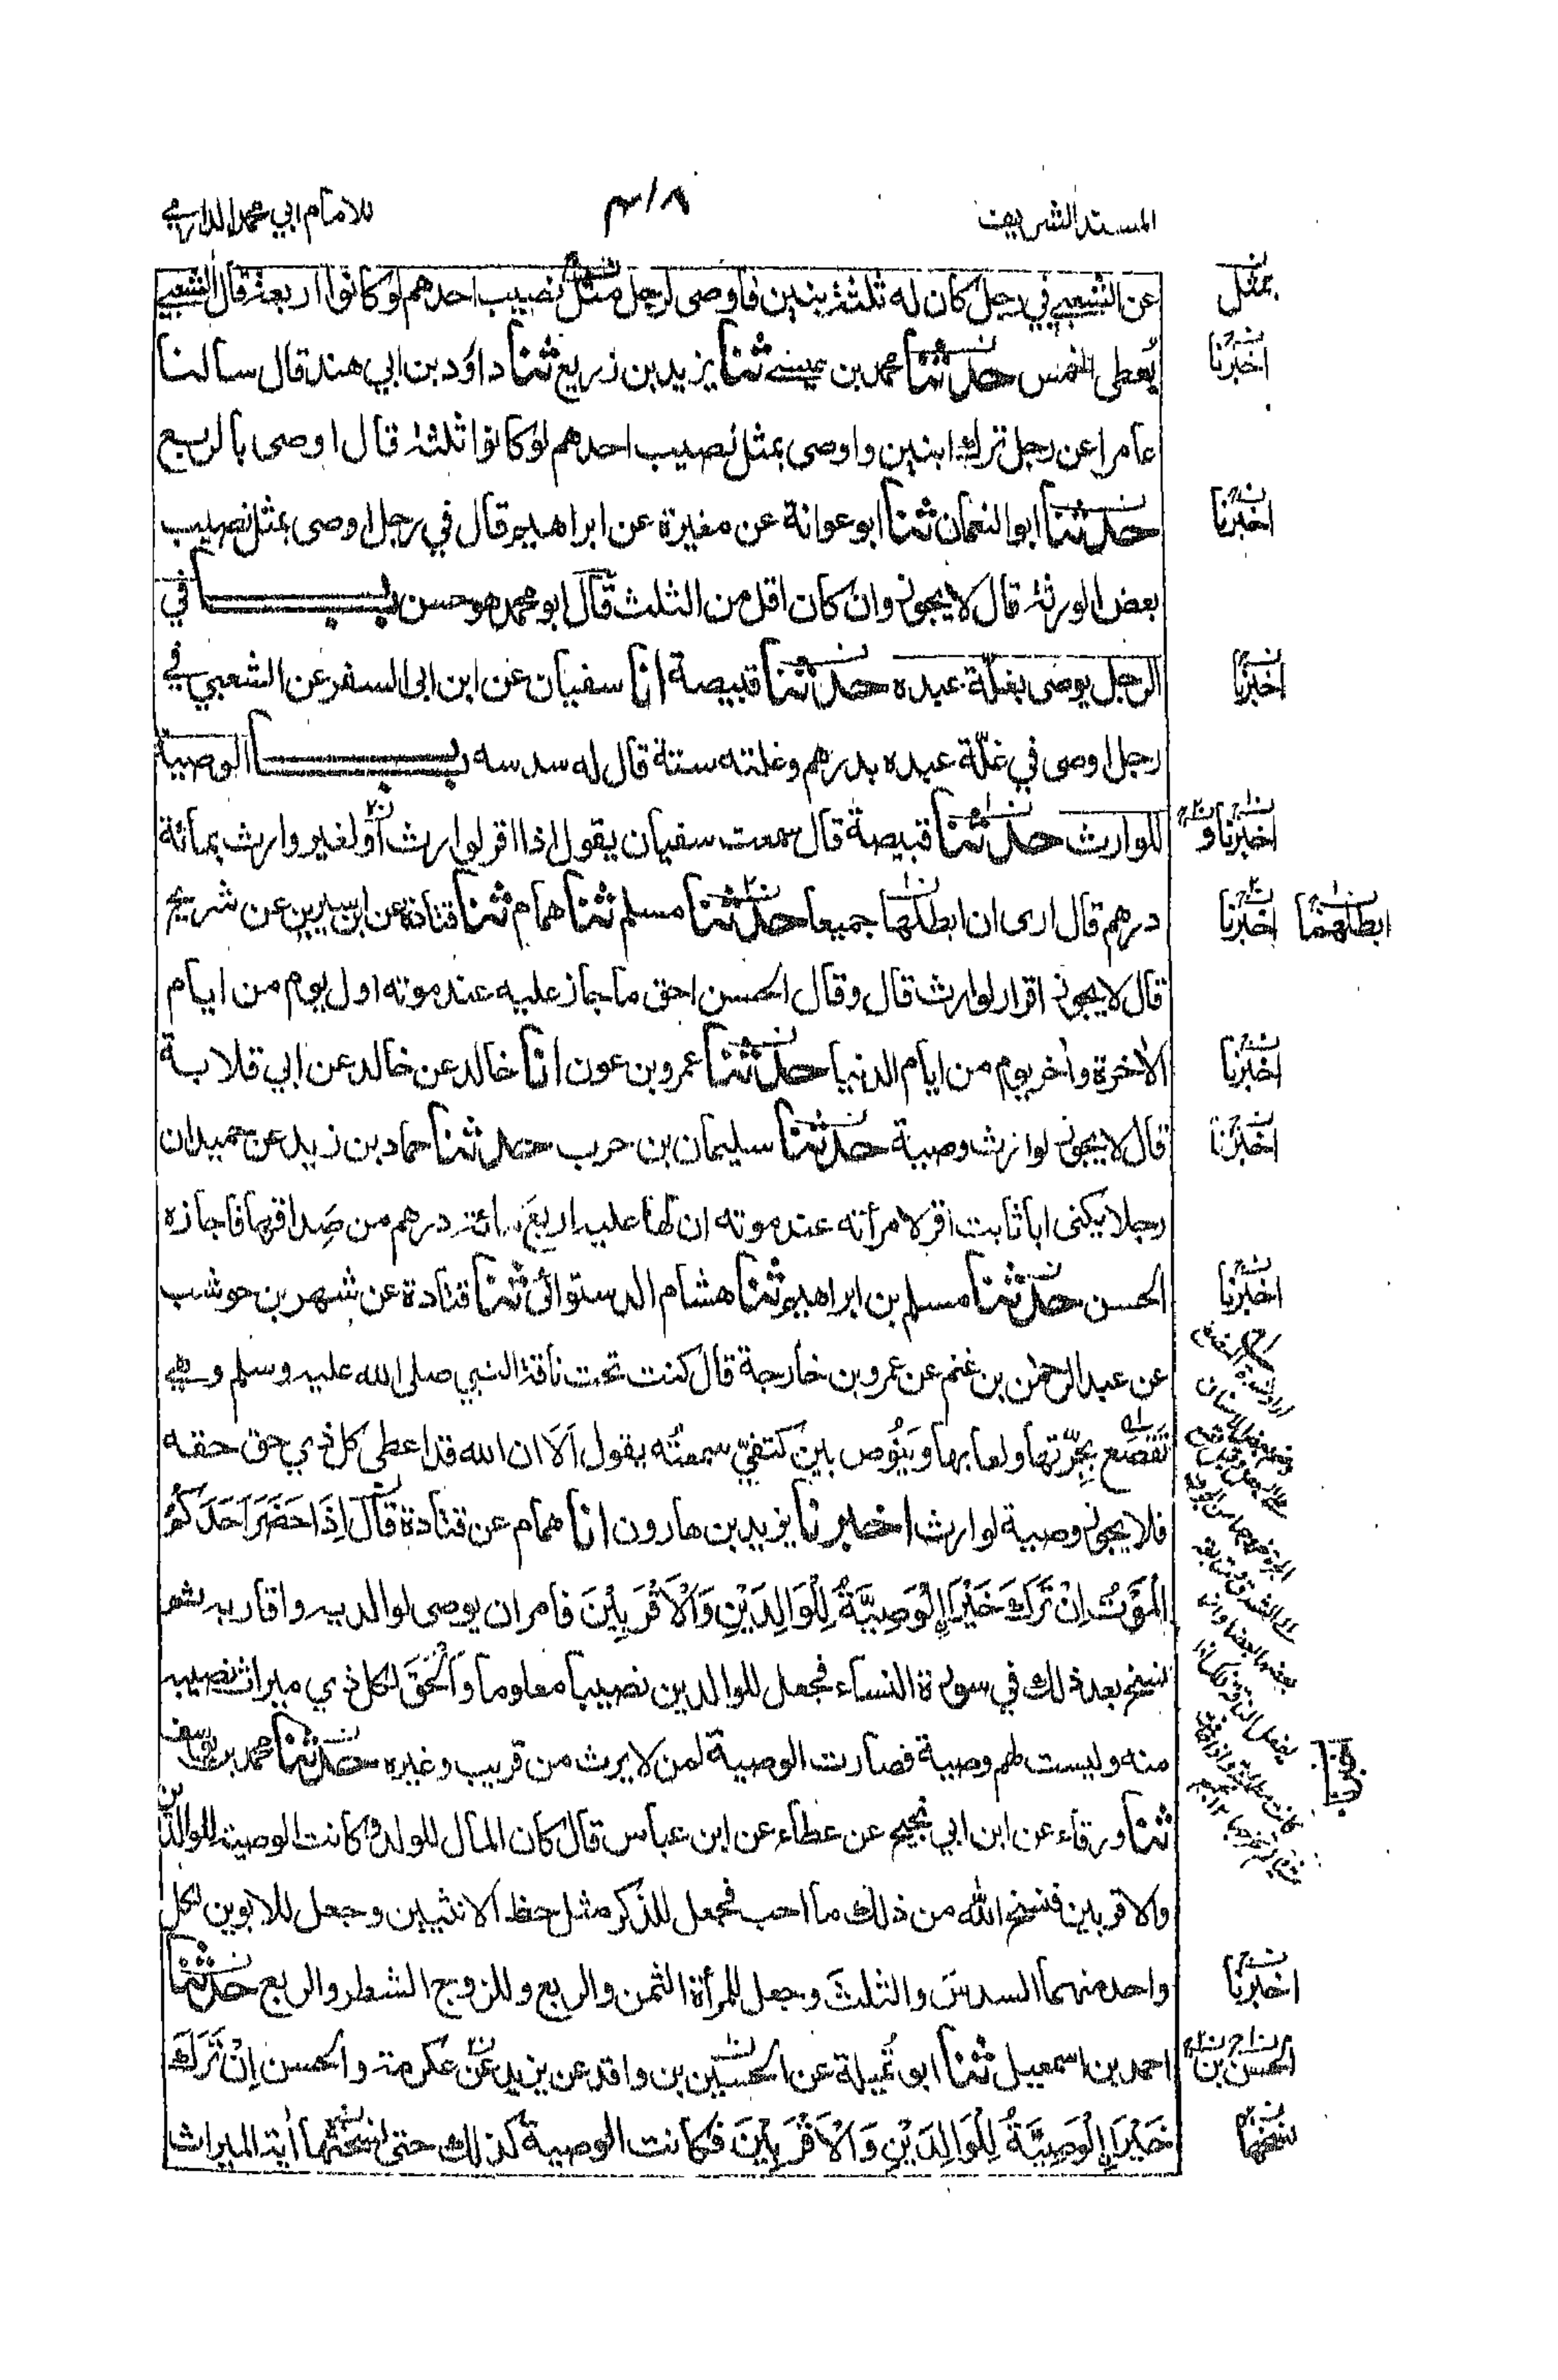 المسند الشريف
٤١٨
للامام ابي محمد الدارمي
عن الشعبي في رجل كان له ثلثة بنين فاوصى لرجل مثل نصيب احدهم لو كانوا اربعة قال الشعبي
يُعطى الخمس حدثنا محمد بن عيسى ثنا يزيد بن زريع ثنا داؤد بن ابي هند قال سالنا
عامرا عن رجل ترك ابنين واوصى بمثل نصيب احدهم لو كانوا ثلثة قال اوصى بالربع
حدثنا ابو النعمان ثنا ابو عوانة عن مغيرة عن ابراهيم قال في رجل اوصى بمثل نصيب
بعض الورثة قال لا يجوز وان كان اقل من الثلث قال ابو محمد هو حسن باب في
الرجل يوصى بغلّة عبده حدثنا قبيصة انا سفيان عن ابن ابى السفر عن الشعبي في
رجل اوصى في غلّة عبده بدرهم وغلته ستة قال له سدسه باب الوصية
للوارث حدثنا قبيصة قال سمعت سفيان يقول اذا اقر لوارث أو لغير وارث بمائة
درهم قال ارى ان ابطلها جميعا حدثنا مسلم ثنا همام ثنا قتادة عن ابن سيرين عن شريح
قال لا يجوز اقرار لوارث قال وقال الحسن احق ما جاز عليه عند موته اول يوم من ايام
الاٰخرة واٰخر يوم من ايام الدنيا حدثنا عمرو بن عون انا خالد عن خالد عن ابي قلابة
قال لا يجوز لوارث وصية حدثنا سليمان بن حرب حدثنا حماد بن زيد عن حميد ان
رجلا يكنى ابا ثابت اقر لامرأته عند موته ان لها عليه اربعَ مائة درهم من صِداقها فاجازه
الحسن حدثنا مسلم بن ابراهيم ثنا هشام الدستوائى ثنا قتادة عن شهر بن حوشب
عن عبد الرحمٰن بن غنم عن عمرو بن خارجة قال كنت تحت ناقة النبي صلى الله عليه وسلم وهي
تَقصَع بجِرّتها ولعابها ويَنُوص بين كتفيّ سمعتُه يقول اَلَا ان الله قد اعطى كل ذي حق حقه
فلا يجوز وصية لوارث اخبرنا يزيد بن هارون انا همام عن قتادة قال اِذَا حَضَرَ اَحَدَكُمُ
الْمَوْتُ اِنْ تَرَكَ خَيْرَا اِلْوَصِيَّةُ لِلْوَالِدَيْنِ وَالْاَقْرَبِيْنَ فامر ان يوصى لوالديه واقاربه ثم
نسخ بعد ذلك في سورة النساء فجعل للوالدين نصيبا معلوما وَاَلْحَقَ لكل ذي ميراث نصيبه
منه وليست لهم وصية فصارت الوصية لمن لا يرث من قريب وغيره حدثنا محمد بن يوسف
ثنا ورقاء عن ابن ابي نجيح عن عطاء عن ابن عباس قال كان المال للولد وكانت الوصية للوالدين
والاقربين فنسخ الله من ذلك ما احب فجعل للذكر مثل حظ الانثيين وجعل للابوين لكل
واحد منهما السدسَ والثلثَ وجعل للمرأة الثمن والربع وللزوج الشطر والربع حدثنا
احمد بن اسمعيل ثنا ابو تُميلة عن الحسين بن واقد عن يزيد عن عكرمة والحسن اِنْ تَرَكَ
خَيْرَا اِلْوَصِيَّةُ لِلْوَالِدَيْنِ وَالْاَقْرَبِيْنَ فكانت الوصية كذلك حتى نسختها أية الميراث
بمثل
اخبرنا
اخبرنا
اخبرنا
اخبرنا و
ابطلهما اخبرنا
اخبرنا
اخبرنا
اخبرنا
اخبرنا
الحسن بن
نسخها